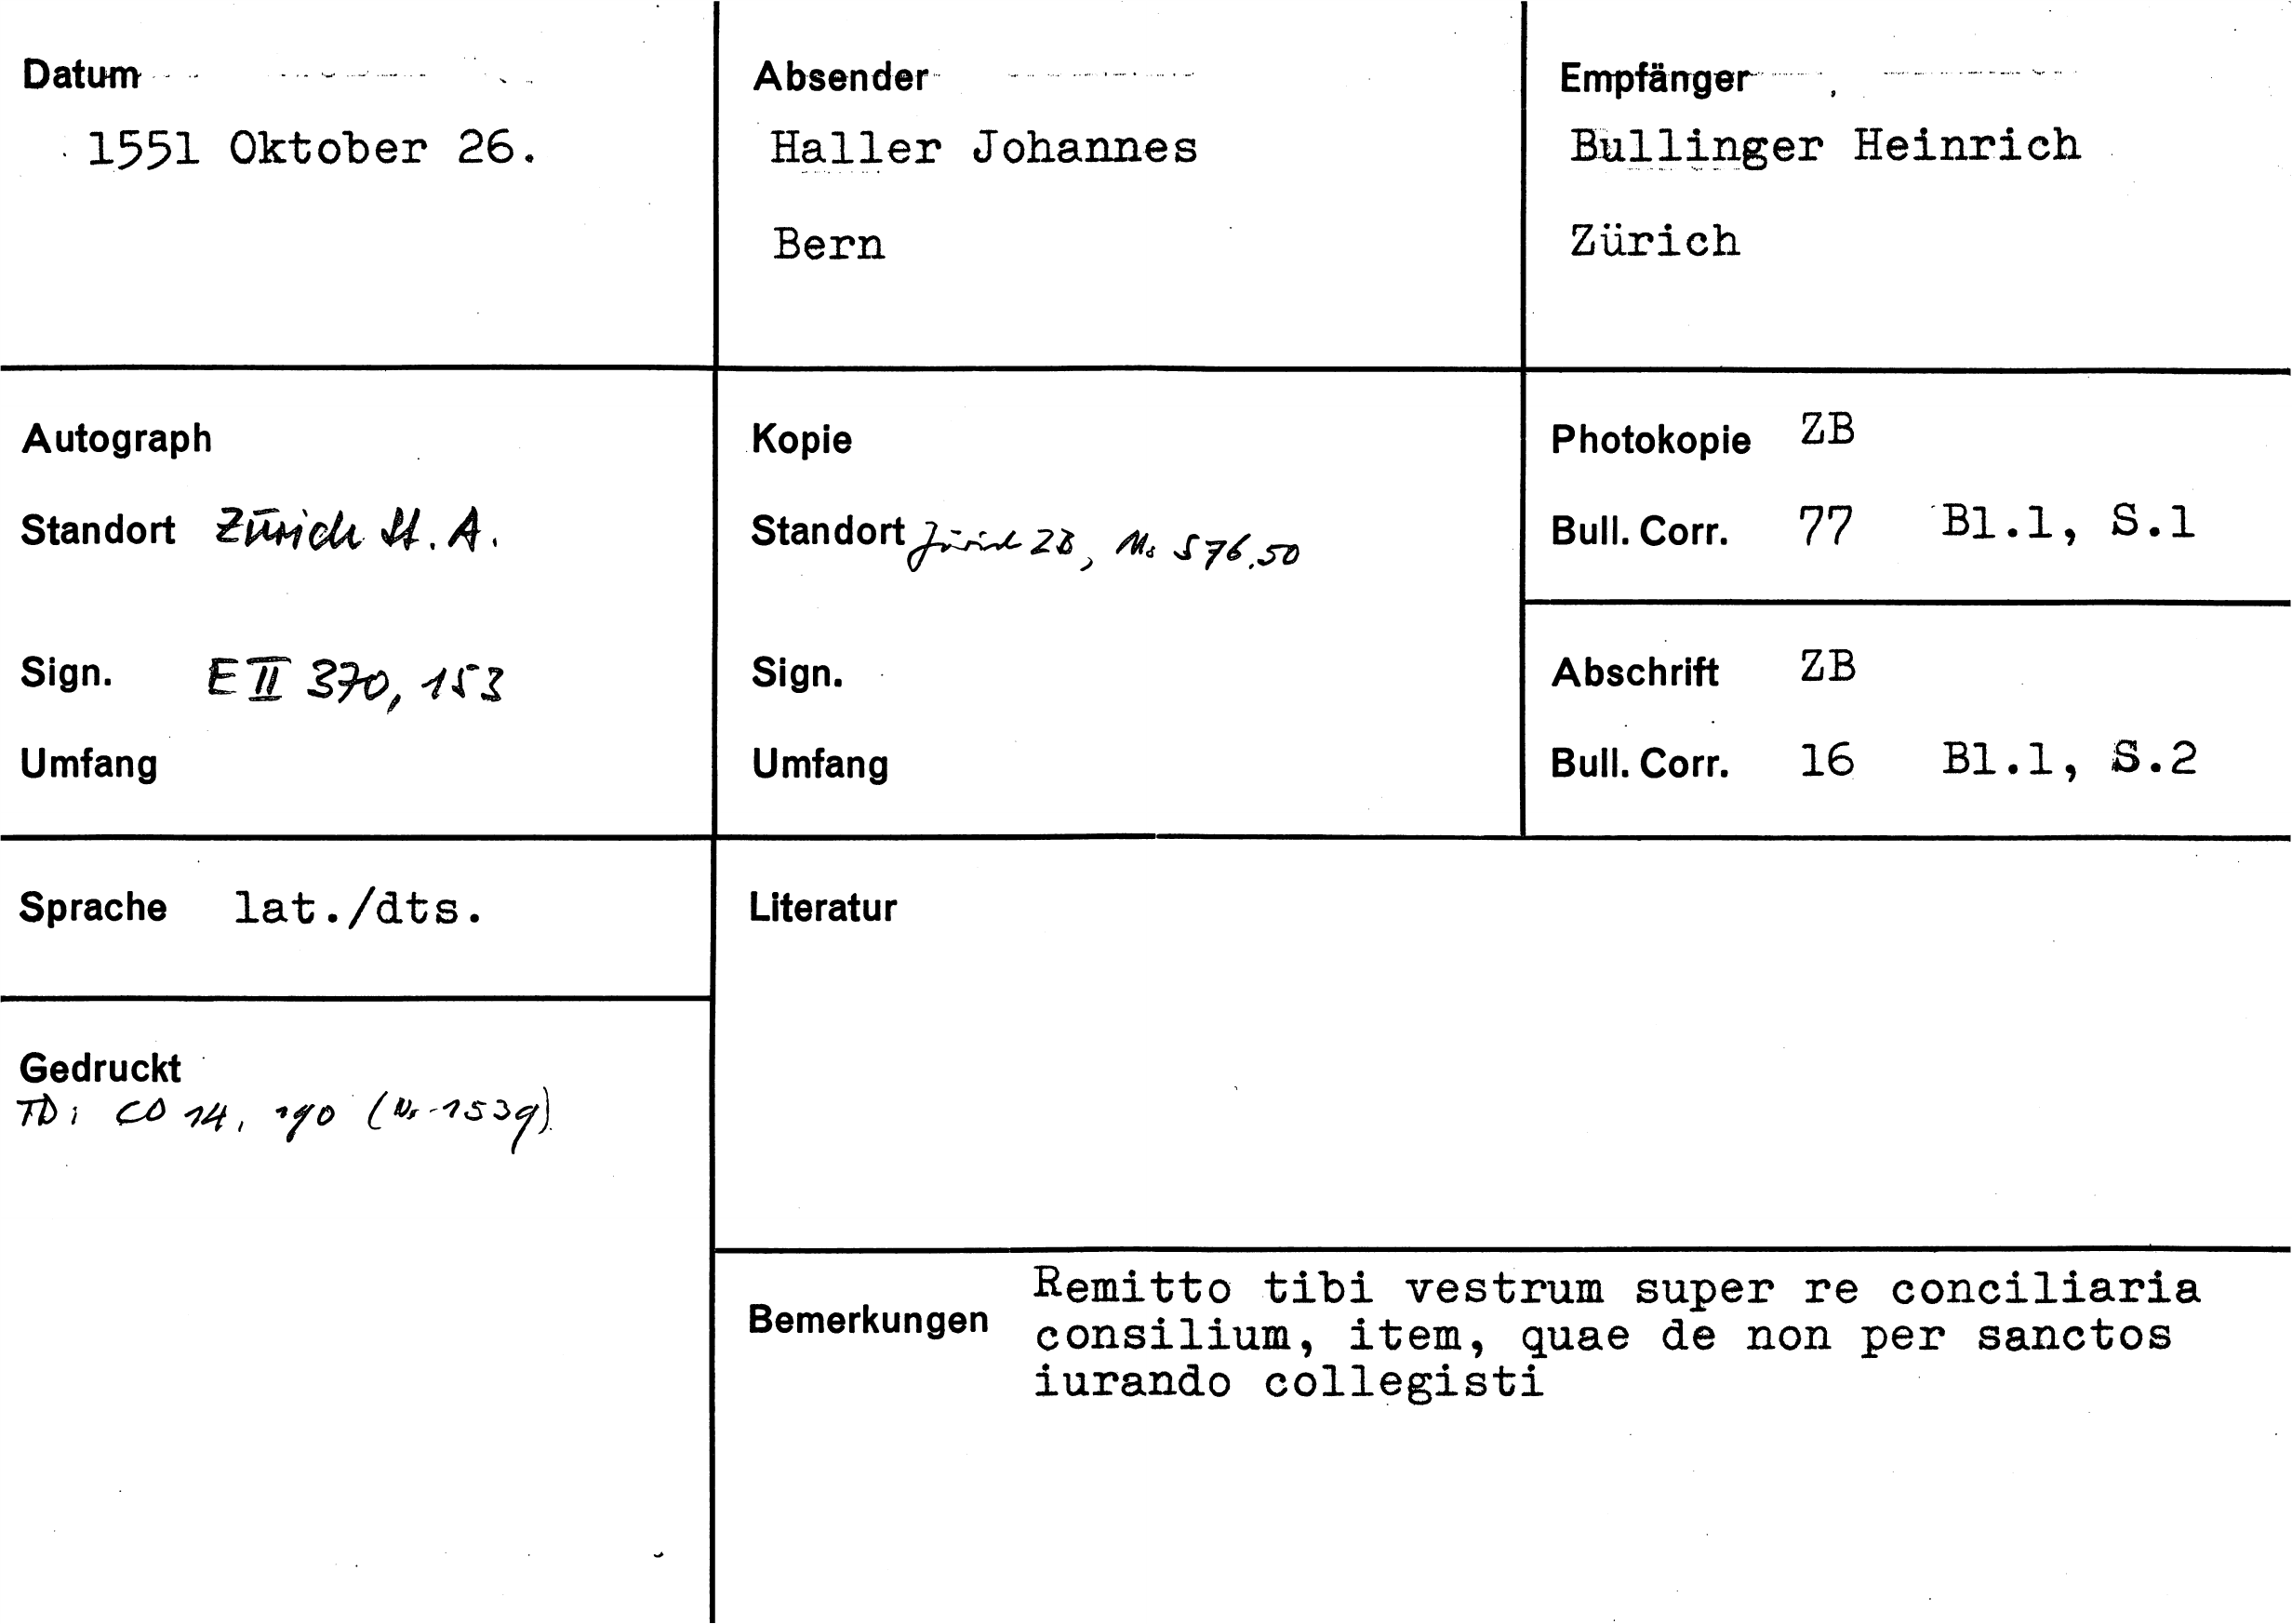 Datum
1551 Oktober 26.
Absender
Haller Johannes
Bern
Empfänger
Bullinger Heinrich
Zürich
Autograph
Standort Zürich St. A.
Sign. E II 370, 153
Umfang
Kopie
Standort Zürich ZB, Ms S 76, 50
Sign.
Umfang
Photokopie ZB
Bull. Corr. 77 Bl.1, S.1
Abschrift ZB
Bull. Corr. 16 Bl.1, S.2
Sprache lat./dts.
Literatur
Gedruckt
TD: CO 14, 190 (Nr. 1539)
Bemerkungen
Remitto tibi vestrum super re conciliaria
consilium, item, quae de non per sanctos
iurando collegisti